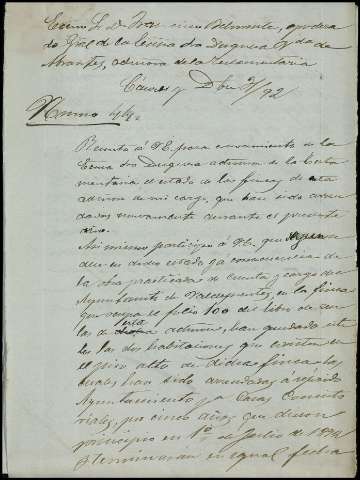 Excmo. S. D. Francisco Belmonte, apodera
do Gral de la Excma Sra Duquesa Vda de
Abrantes, admora de la Testamentaria
Cáceres y Dbre 3/92
Numo 44.
Remito á V.E. para conocimiento de la
Excma Sra Duquesa admora de la Testa
mentaria el estado de las fincas de esta
admon de mi cargo, que han sido arren
dadas nuevamente durante el presente
año.
Asi mismo participo á V.E. que
en dicho estado y á consecuencia de
la obra practicada de cuenta y cargo del
Ayuntamiento de Valdefuentes, en la finca
que ocupa el folio 100 del libro de ren
tas de esta admon, han quedado uti
les las dos habitaciones que existen en
el piso alto de dicha finca, las
cuales han sido arrendadas á referido
Ayuntamiento, pa Casas Consisto
riales, por cinco años que dieron
principio en 1º de Julio de 1892
y terminarán en igual fecha